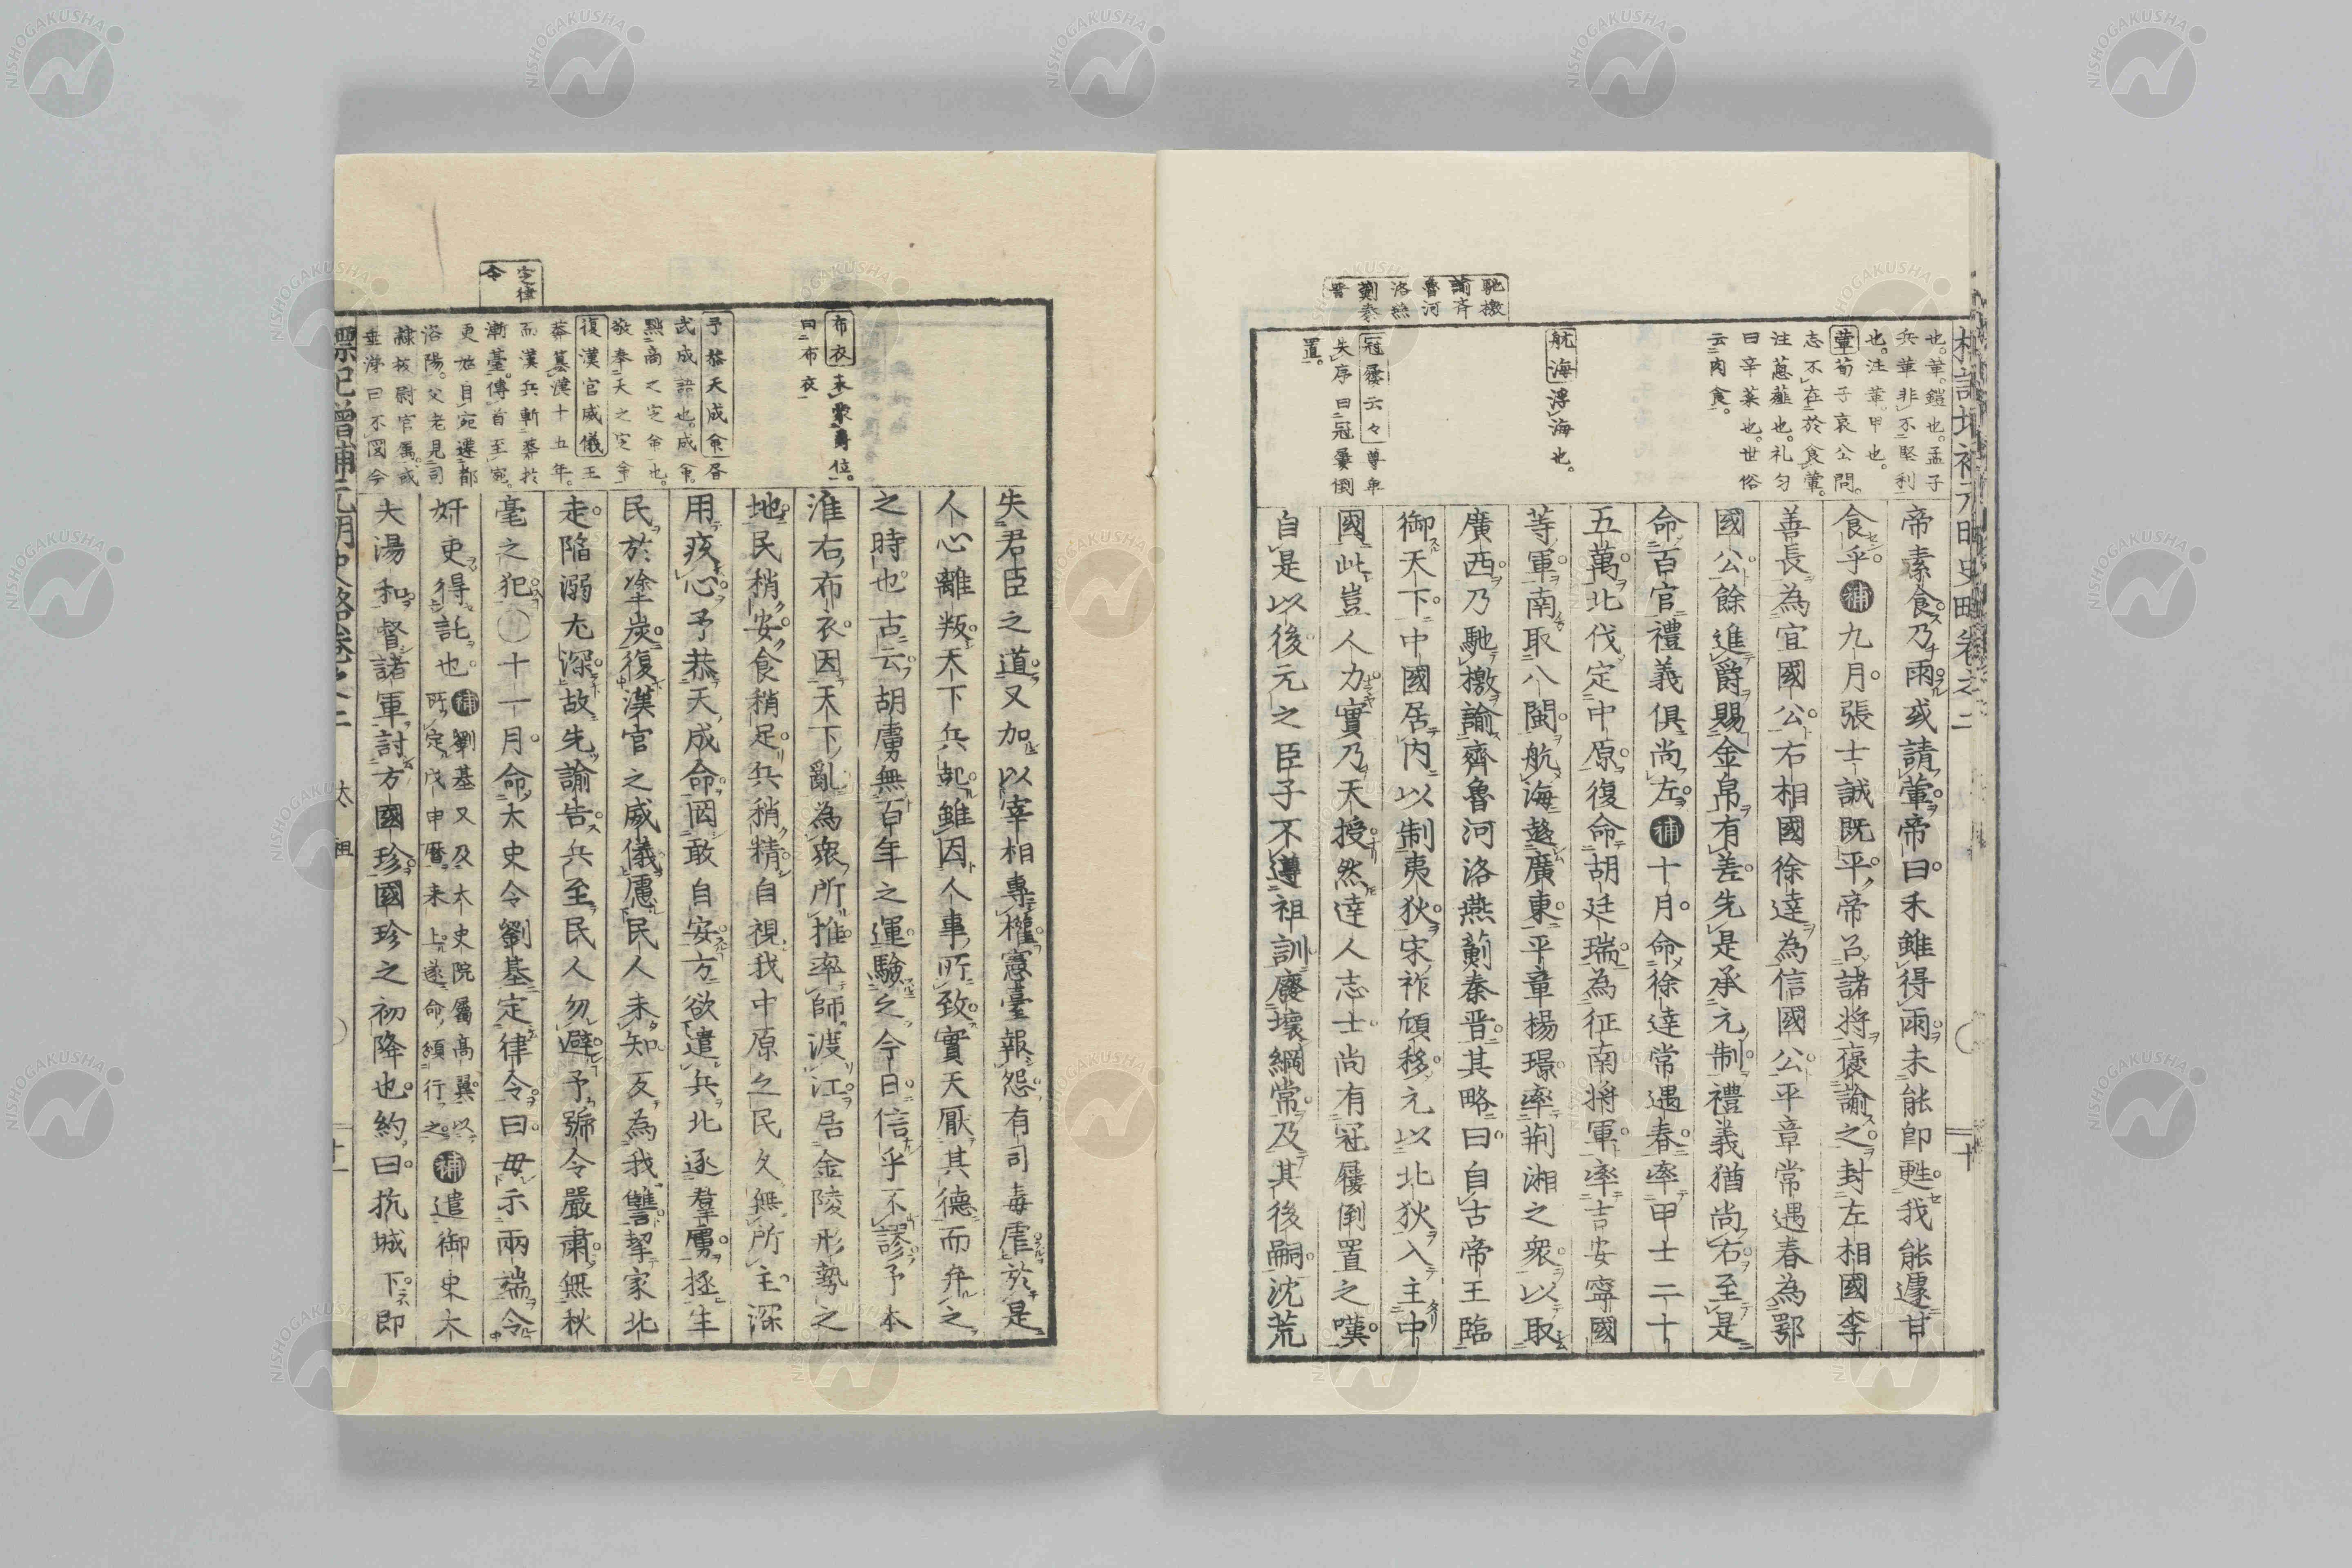 馳檄
諭齊
魯河
洛燕
薊秦
晋
也。華。鎧也。孟子
兵革非不堅利
也。注革。甲也。
葷荀子哀公問。
志不在於食葷。
注葱薤也。礼
曰辛菜也。世俗
云肉食。
航海浮海也。
冠履云々尊卑
失序曰冠履倒
置。
帝素食乃雨或請葷帝曰禾雖得雨未能卽甦我能遽甘
食乎補九月張士誠既平帝召諸将褒諭之封左相國李
善長為宣國公右相國徐達為信國公平章常遇春為鄂
國公餘進爵賜金帛有差先是承元制禮義猶尚右至是
命百官禮義俱尚左補十月命徐達常遇春率甲士二十
五萬北伐定中原復命胡廷瑞為征南将軍率吉安寧國
等軍南取八閩航海趍廣東平章楊璟率荊湘之衆以取
廣西乃馳檄諭齊魯河洛燕薊秦晋其略曰自古帝王臨
御天下中國居内以制夷狄宋祚傾移元以北狄入主中
國此豈人力實乃天授然達人志士尚有冠履倒置之嘆
自是以後元之臣子不遵祖訓廢壞綱常及其後嗣沈荒
定律
令
布衣未受爵位。
曰布衣
予恭天成命居
武成語也。成命。
黙商之定命也。
敬奉天之定命
復漢官威儀王
莽簒漢十五年。
而漢兵斬莽於
漸臺。傳首至宛。
更始自宛遷都
洛陽。父老見司
隷挍尉官属。或
垂涕曰不図今
失君臣之道又加以宰相專權憲臺報怨有司毒虐於是
人心離叛天下兵起雖因人事所致實天厭其德而弃之
之時也古云胡虜無百年之運驗之今日信乎不謬予本
淮右布衣因天下亂為衆所推率師渡江居金陵形勢之
地民稍安食稍足兵稍精自視我中原之民久無所主深
用疚心予恭天成命罔敢自安方欲遣兵北逐羣虜拯生
民於塗炭復漢官之威儀慮民人未知反為我讐挈家北
走陷溺尤深故先諭告兵至民人勿避予號令嚴肅無秋
毫之犯○十一月命太史令劉基定律令曰毋示兩端令
奸吏得託也補劉基又及太史院屬高翼以
所定戊申曆来上遂命頒行之補遣御史大
夫湯和督諸軍討方國珍國珍之初降也約曰抗城下即
標記增補元明史略卷之二　太祖　十一